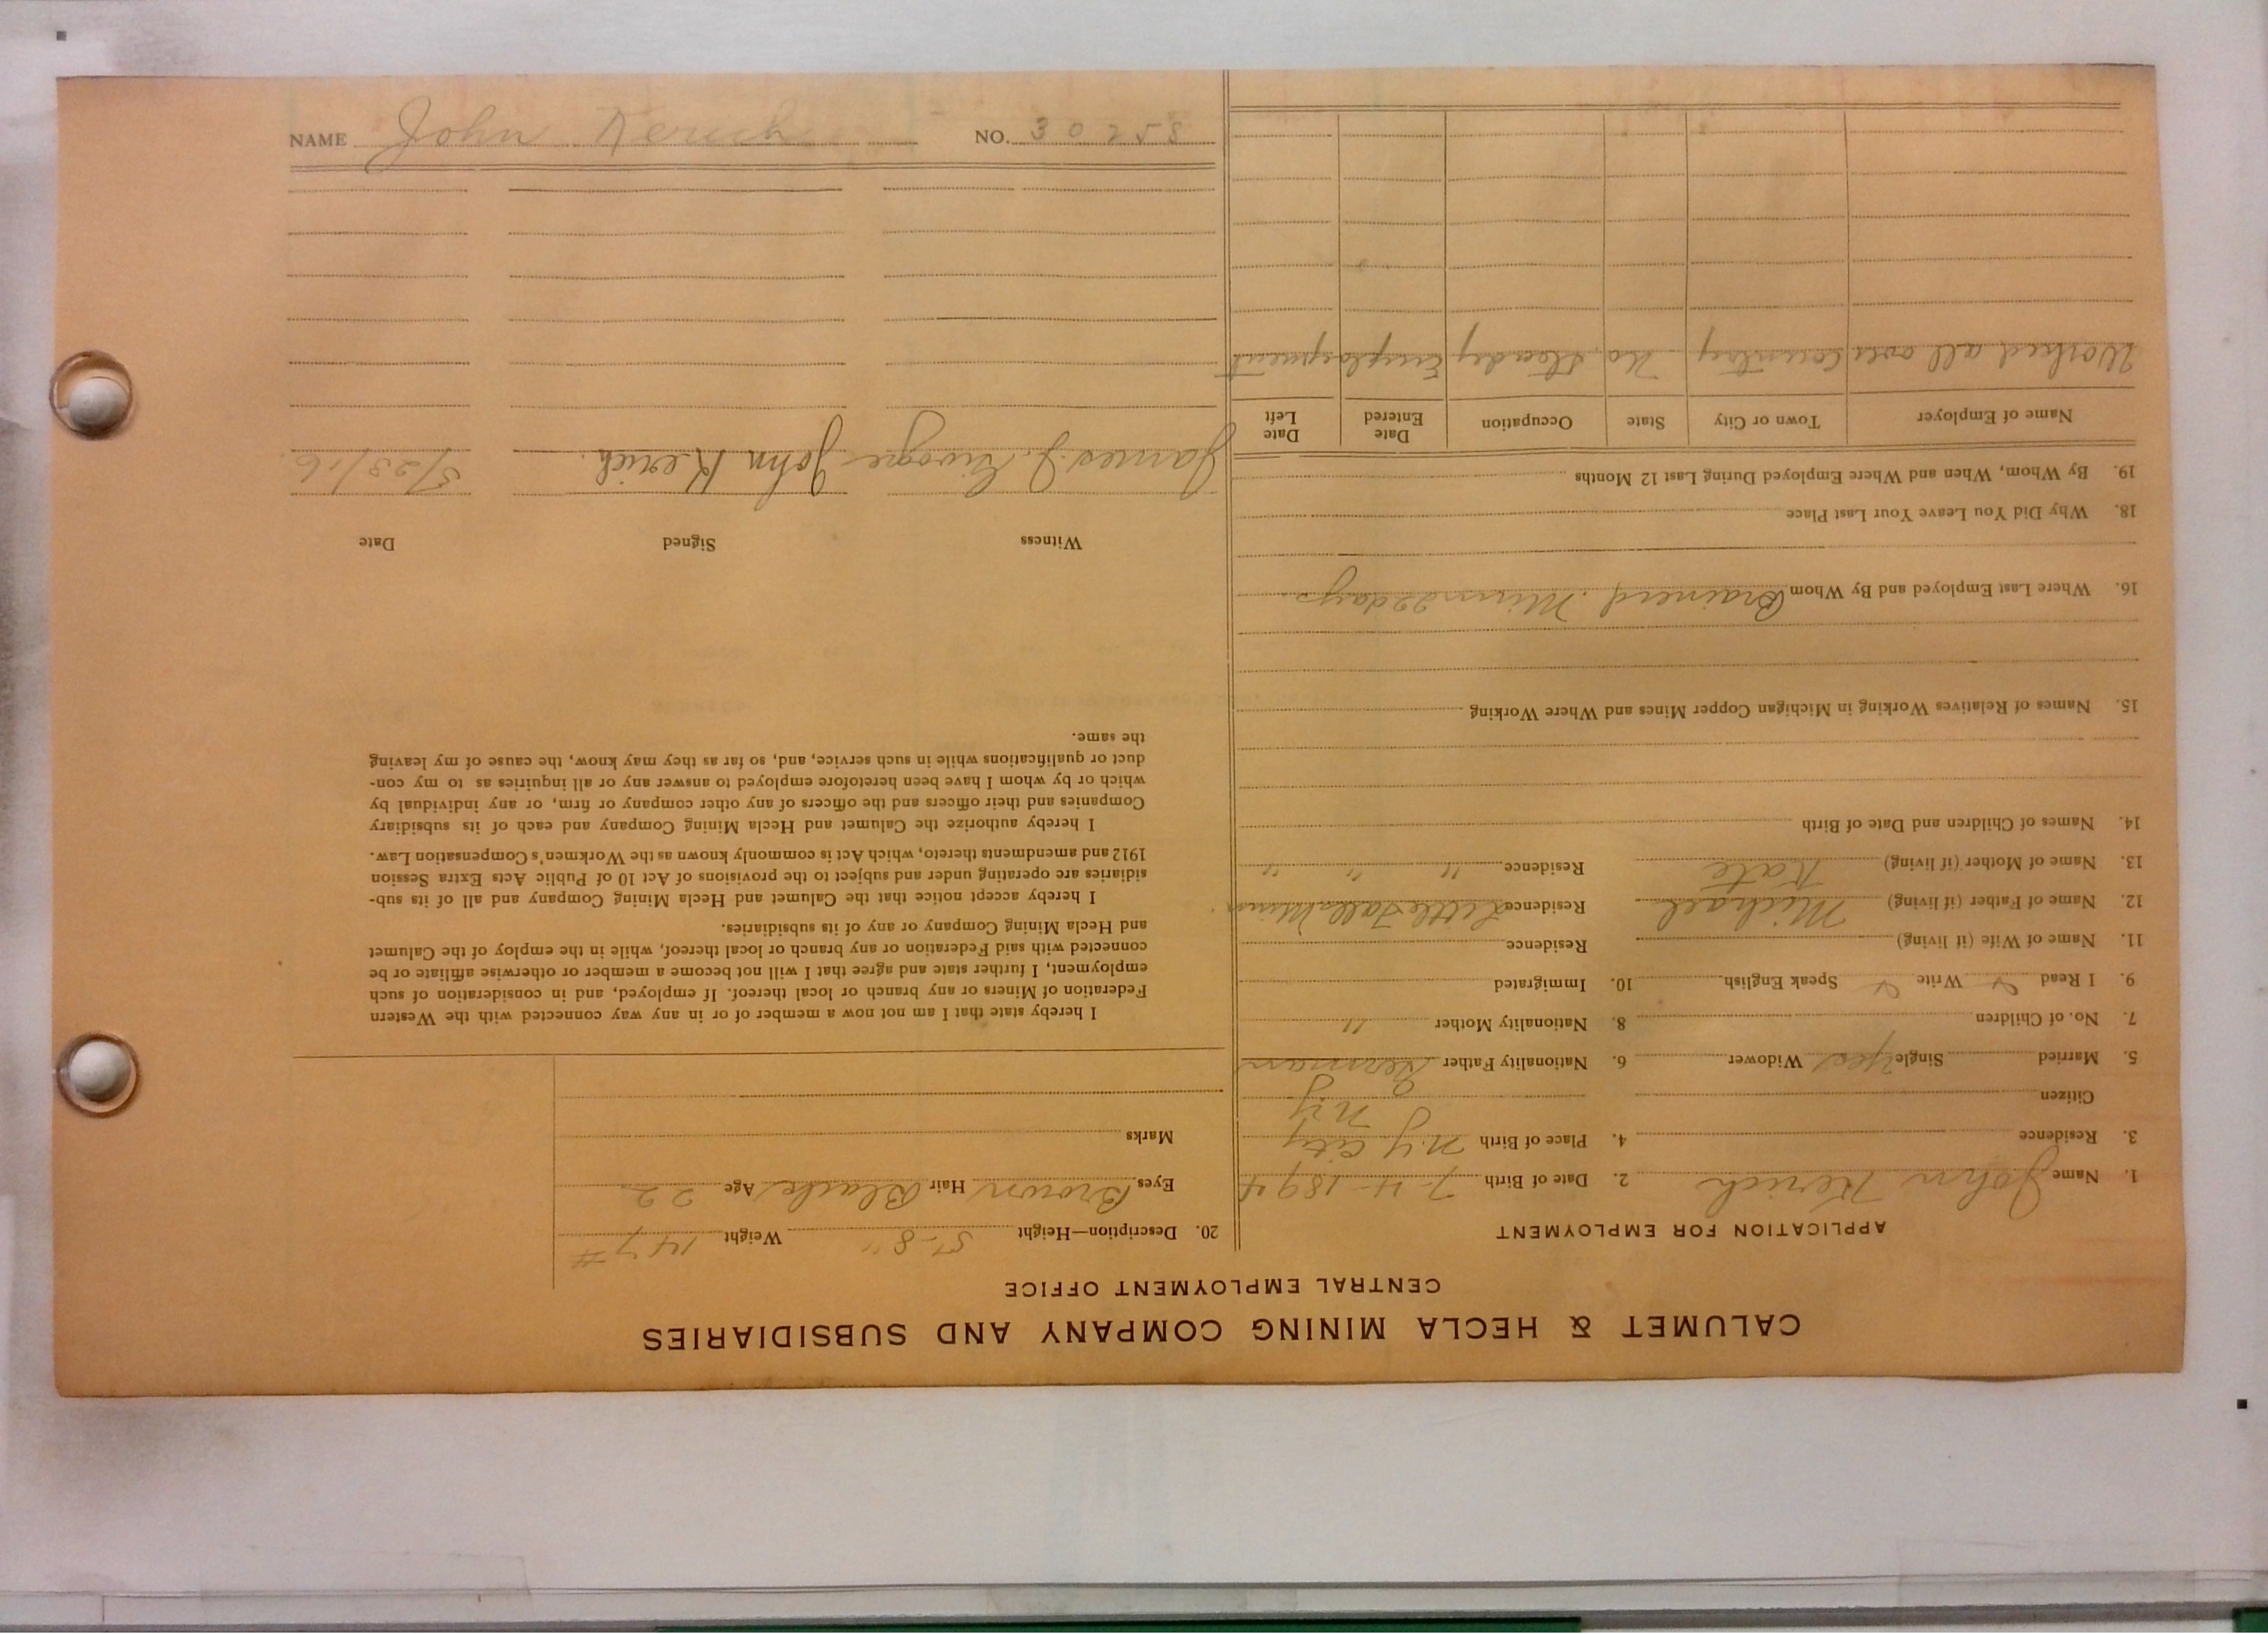 CALUMET & HECLA MINING COMPANY AND SUBSIDIARIES
CENTRAL EMPLOYMENT OFFICE
APPLICATION FOR EMPLOYMENT
1. Name John Kerich 2. Date of Birth 7-4-1894
3. Residence 4. Place of Birth N.Y. City
N.Y
Citizen
5. Married Single yes Widower 6. Nationality Father German
7. No. of Children 8. Nationality Mother "
9. I Read Write Speak English. 10. Immigrated
11. Name of Wife (if living) Residence
12. Name of Father (if living) Michael Residence Little Falls Minn
13. Name of Mother (if living) Kate Residence " " "
14. Names of Children and Date of Birth
15. Names of Relatives Working in Michigan Copper Mines and Where Working
16. Where Last Employed and By Whom Brainerd. Minn 22 days
18. Why Did You Leave Your Last Place
19. By Whom, When and Where Employed During Last 12 Months
Name of Employer Town or City State Occupation Date Entered Date Left
Worked all over Country No Steady Employment
20. Description—Height 5'-8" Weight 147#
Eyes Brown Hair Black Age 22
Marks
I hereby state that I am not now a member of or in any way connected with the Western
Federation of Miners or any branch or local thereof. If employed, and in consideration of such
employment, I further state and agree that I will not become a member or otherwise affiliate or be
connected with said Federation or any branch or local thereof, while in the employ of the Calumet
and Hecla Mining Company or any of its subsidiaries.
I hereby accept notice that the Calumet and Hecla Mining Company and all of its sub-
sidiaries are operating under and subject to the provisions of Act 10 of Public Acts Extra Session
1912 and amendments thereto, which Act is commonly known as the Workmen's Compensation Law.
I hereby authorize the Calumet and Hecla Mining Company and each of its subsidiary
Companies and their officers and the officers of any other company or firm, or any individual by
which or by whom I have been heretofore employed to answer any or all inquiries as to my con-
duct or qualifications while in such service, and, so far as they may know, the cause of my leaving
the same.
Witness Signed Date
James J. John Kerich. 5/23/16.
NAME John Kerich NO. 30258